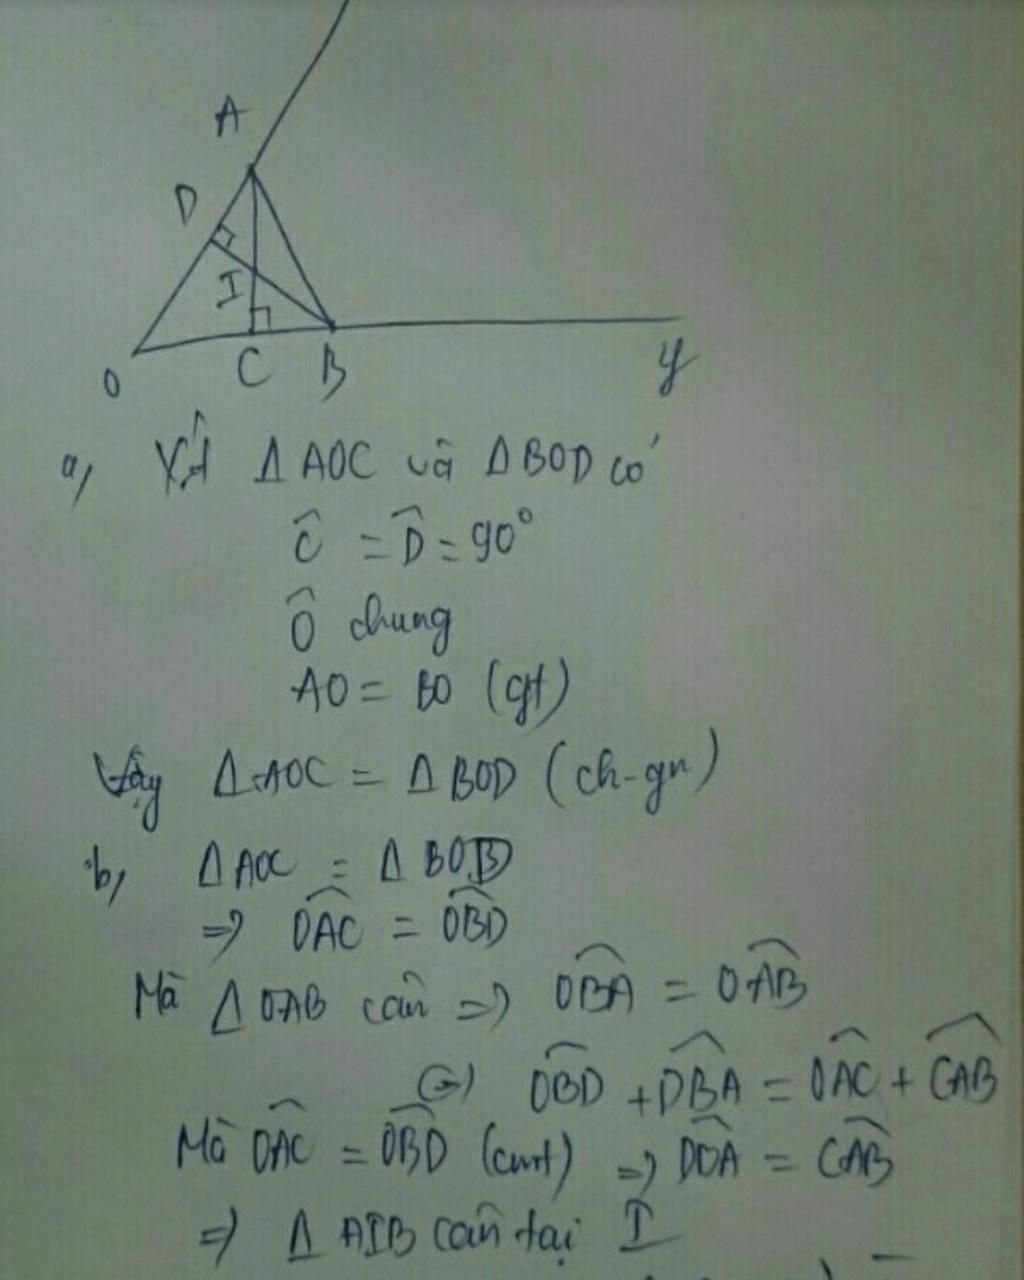 A
D
I
O
C
B
y
a, Xét Δ AOC và Δ BOD có
Ĉ = D̂ = 90°
Ô chung
AO = BO (gt)
Vậy Δ AOC = Δ BOD (ch-gn)
b, Δ AOC = Δ BOD
=> \widehat{OAC} = \widehat{OBD}
Mà Δ OAB cân => \widehat{OBA} = \widehat{OAB}
(=) \widehat{OBD} + \widehat{DBA} = \widehat{OAC} + \widehat{CAB}
Mà \widehat{OAC} = \widehat{OBD} (cmt) => \widehat{DOA} = \widehat{CAB}
=> Δ AIB cân tại I